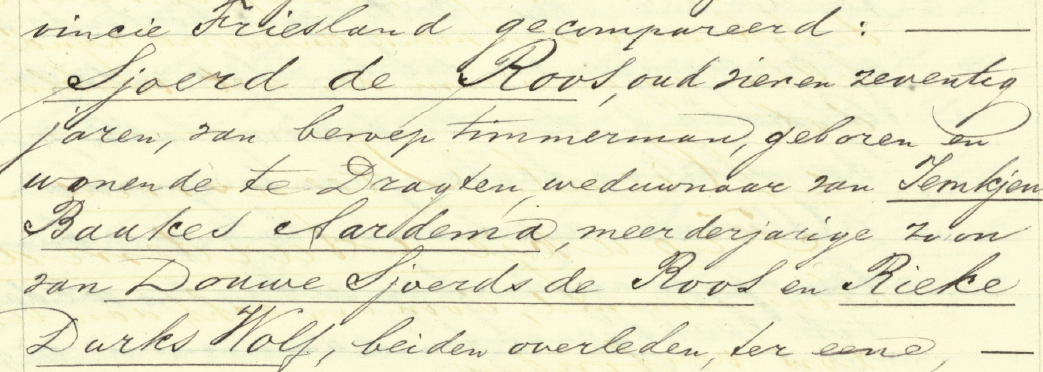 vincie Friesland gecompareerd: —
Sjoerd de Roos, oud vier en zeventig
jaren, van beroep timmerman, geboren en
wonende te Dragten, weduwnaar van Temkjen
Baukes Aardema, meerderjarige zoon
van Douwe Sjoerds de Roos en Rieke
Durks Wolf, beiden overleden, ter eene, —